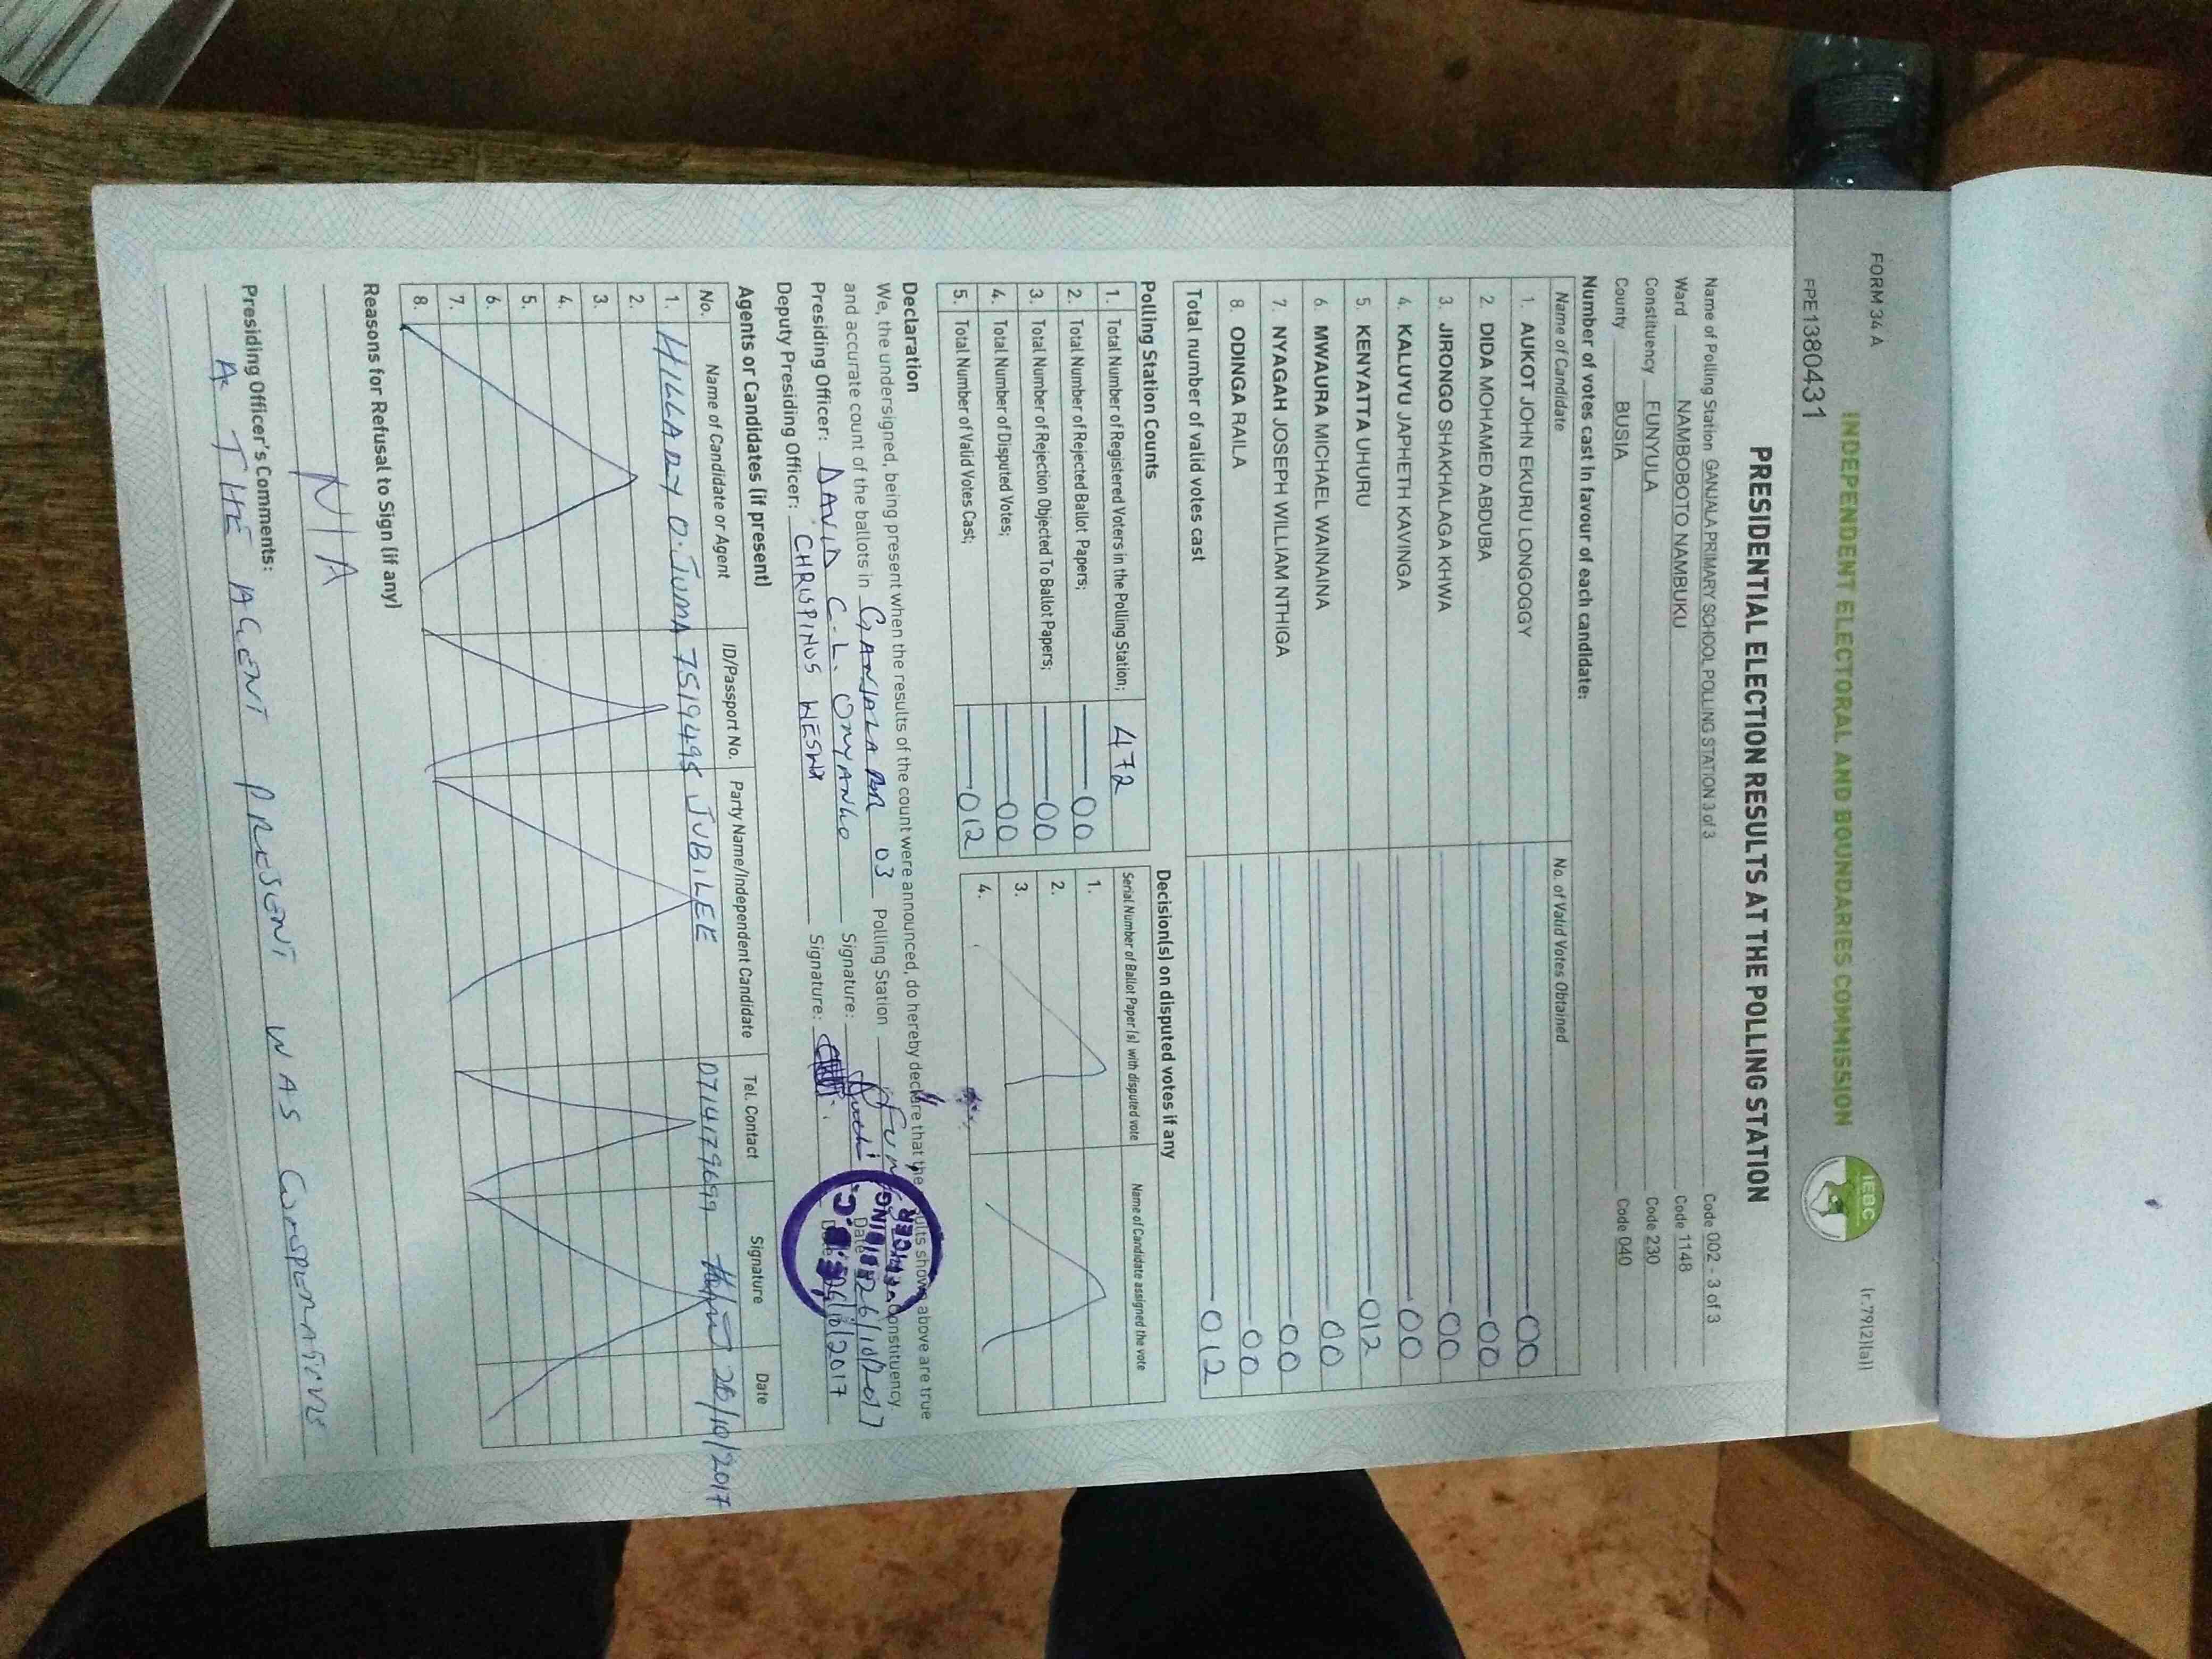 FORM 34 A
(r.79(2)(a))
INDEPENDENT ELECTORAL AND BOUNDARIES COMMISSION
IEBC
FPE1380431
PRESIDENTIAL ELECTION RESULTS AT THE POLLING STATION
Name of Polling Station GANJALA PRIMARY SCHOOL POLLING STATION 3 of 3 Code 002 - 3 of 3
Ward NAMBOBOTO NAMBUKU Code 1148
Constituency FUNYULA Code 230
County BUSIA Code 040
Number of votes cast in favour of each candidate:
Name of Candidate No. of Valid Votes Obtained
1. AUKOT JOHN EKURU LONGOGGY 00
2. DIDA MOHAMED ABDUBA 00
3. JIRONGO SHAKHALAGA KHWA 00
4. KALUYU JAPHETH KAVINGA 00
5. KENYATTA UHURU 012
6. MWAURA MICHAEL WAINAINA 00
7. NYAGAH JOSEPH WILLIAM NTHIGA 00
8. ODINGA RAILA 00
Total number of valid votes cast 012
Polling Station Counts
1. Total Number of Registered Voters in the Polling Station; 472
2. Total Number of Rejected Ballot Papers; 00
3. Total Number of Rejection Objected To Ballot Papers; 00
4. Total Number of Disputed Votes; 00
5. Total Number of Valid Votes Cast; 012
Decision(s) on disputed votes if any
Serial Number of Ballot Paper(s) with disputed vote Name of Candidate assigned the vote
1.
2.
3.
4.
Declaration
We, the undersigned, being present when the results of the count were announced, do hereby declare that the results shown above are true
and accurate count of the ballots in GANJALA 03 Polling Station Constituency.
Presiding Officer: DAVID C. L. ONYANGO Signature: Date 26/10/2017
Deputy Presiding Officer: CHRISPINUS Signature: Date 26/10/2017
Agents or Candidates (if present)
No. Name of Candidate or Agent ID/Passport No. Party Name/Independent Candidate Tel. Contact Signature Date
1. HILLARY O. JUMA 7519495 JUBILEE 0714179699 26/10/2017
2.
3.
4.
5.
6.
7.
8.
Reasons for Refusal to Sign (if any)
N/A
Presiding Officer's Comments:
THE AGENT PRESENT WAS